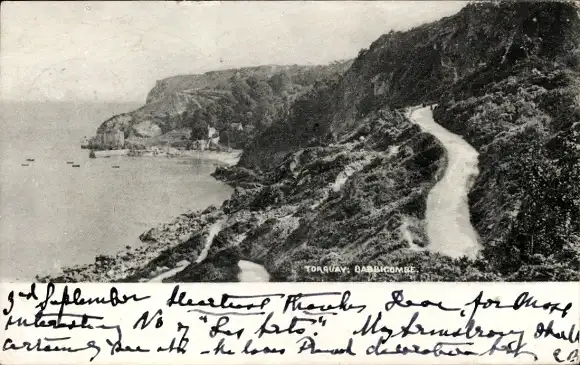 TORQUAY: BABBICOMBE.
3rd September Heartiest Thanks Dear, for most
interesting No of "Les Arts". My Armstrong I shall
certainly see it - he loves decorative